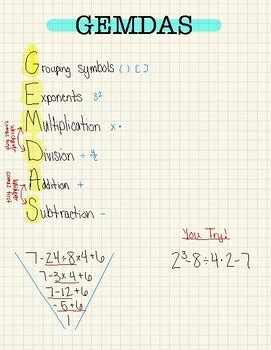 GEMDAS
Grouping symbols ( ) [ ]
Exponents 3²
Multiplication x •
Division ÷
Addition +
Subtraction -
whichever comes first
whichever comes first
7-24÷8x4+6
7-3x4+6
7-12+6
-5+6
1
You Try!
2³-8÷4·2-7